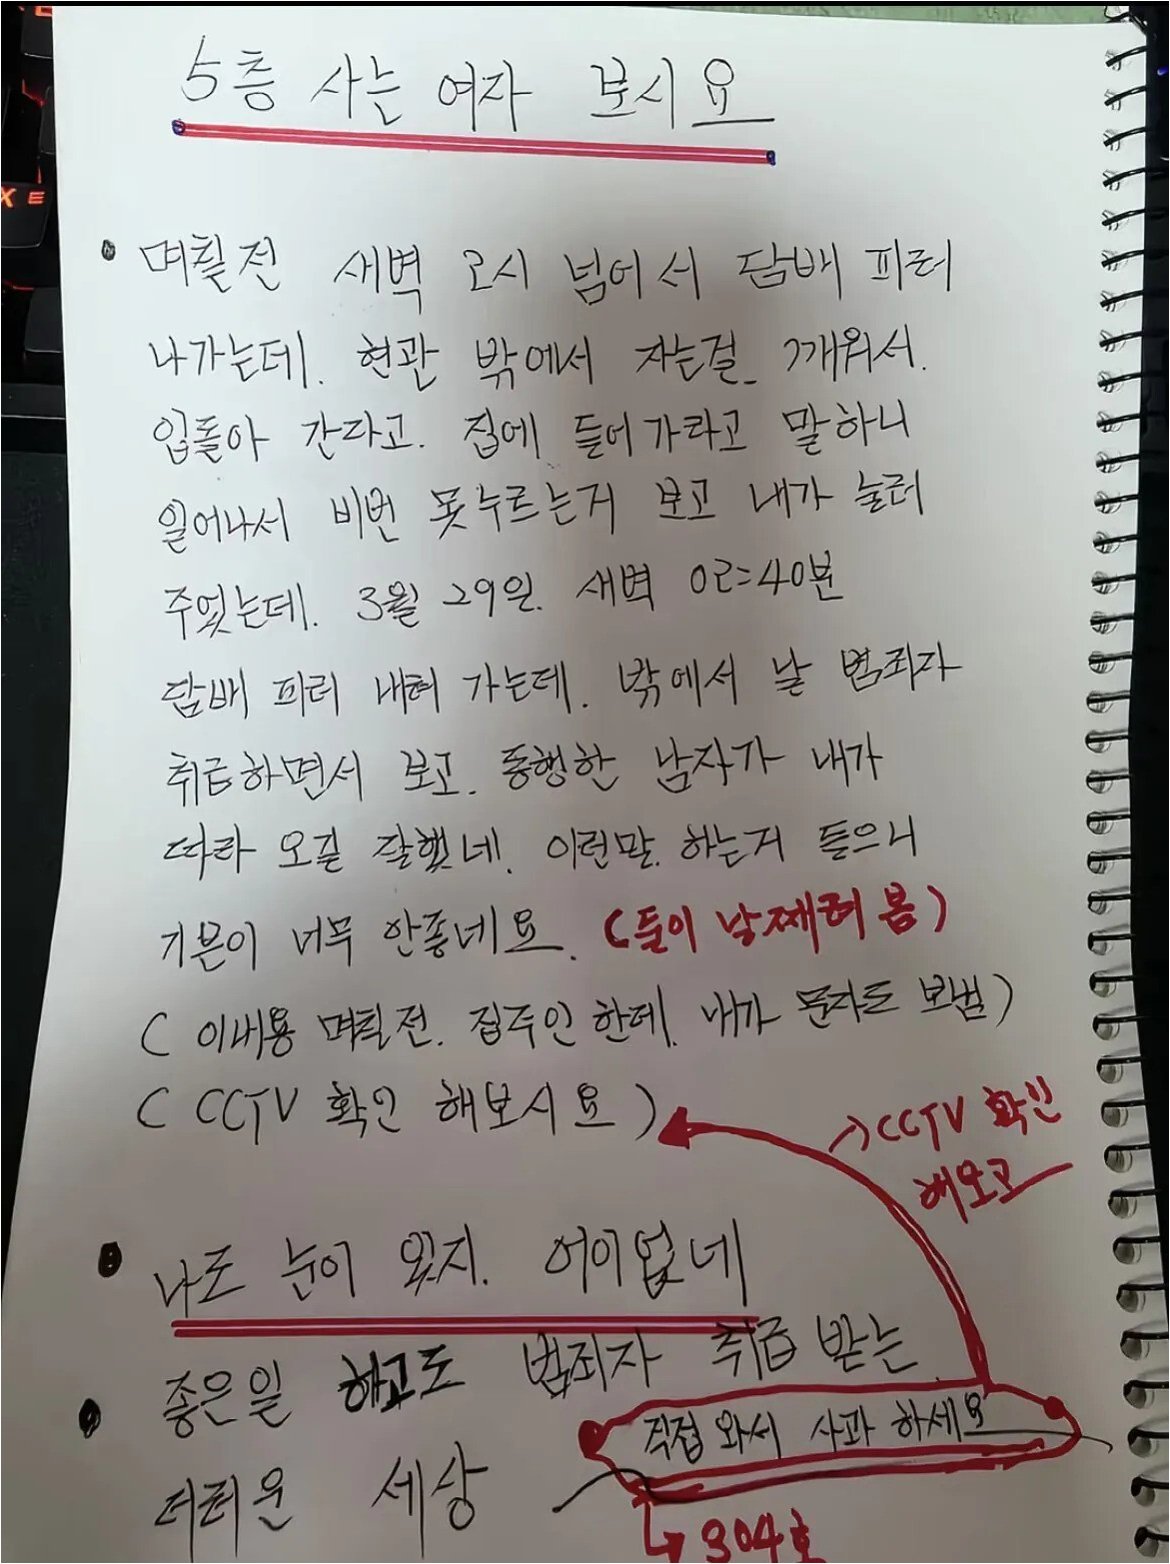 5층 사는 여자 보시요
며칠전 새벽 2시 넘어서 담배 피러
나가는데. 현관 밖에서 자는걸 깨워서.
입돌아 간다고. 집에 들어가라고 말하니
일어나서 비번 못누르는거 보고 내가 눌러
주었는데. 3월 29일. 새벽 02:40분
담배 피러 내려 가는데. 밖에서 날 범죄자
취급하면서 보고. 동행한 남자가 내가
따라 오길 잘했네. 이런말. 하는거 들으니
기분이 너무 안좋네요. (둘이 날 째려 봄)
(이내용 며칠전. 집주인 한테. 내가 문자도 보냄)
(CCTV 확인 해보시요)
CCTV 확인
해보고
나도 눈이 있지. 어이없네
좋은일 하고도 범죄자 취급 받는
더러운 세상
직접 와서 사과 하세요
304호